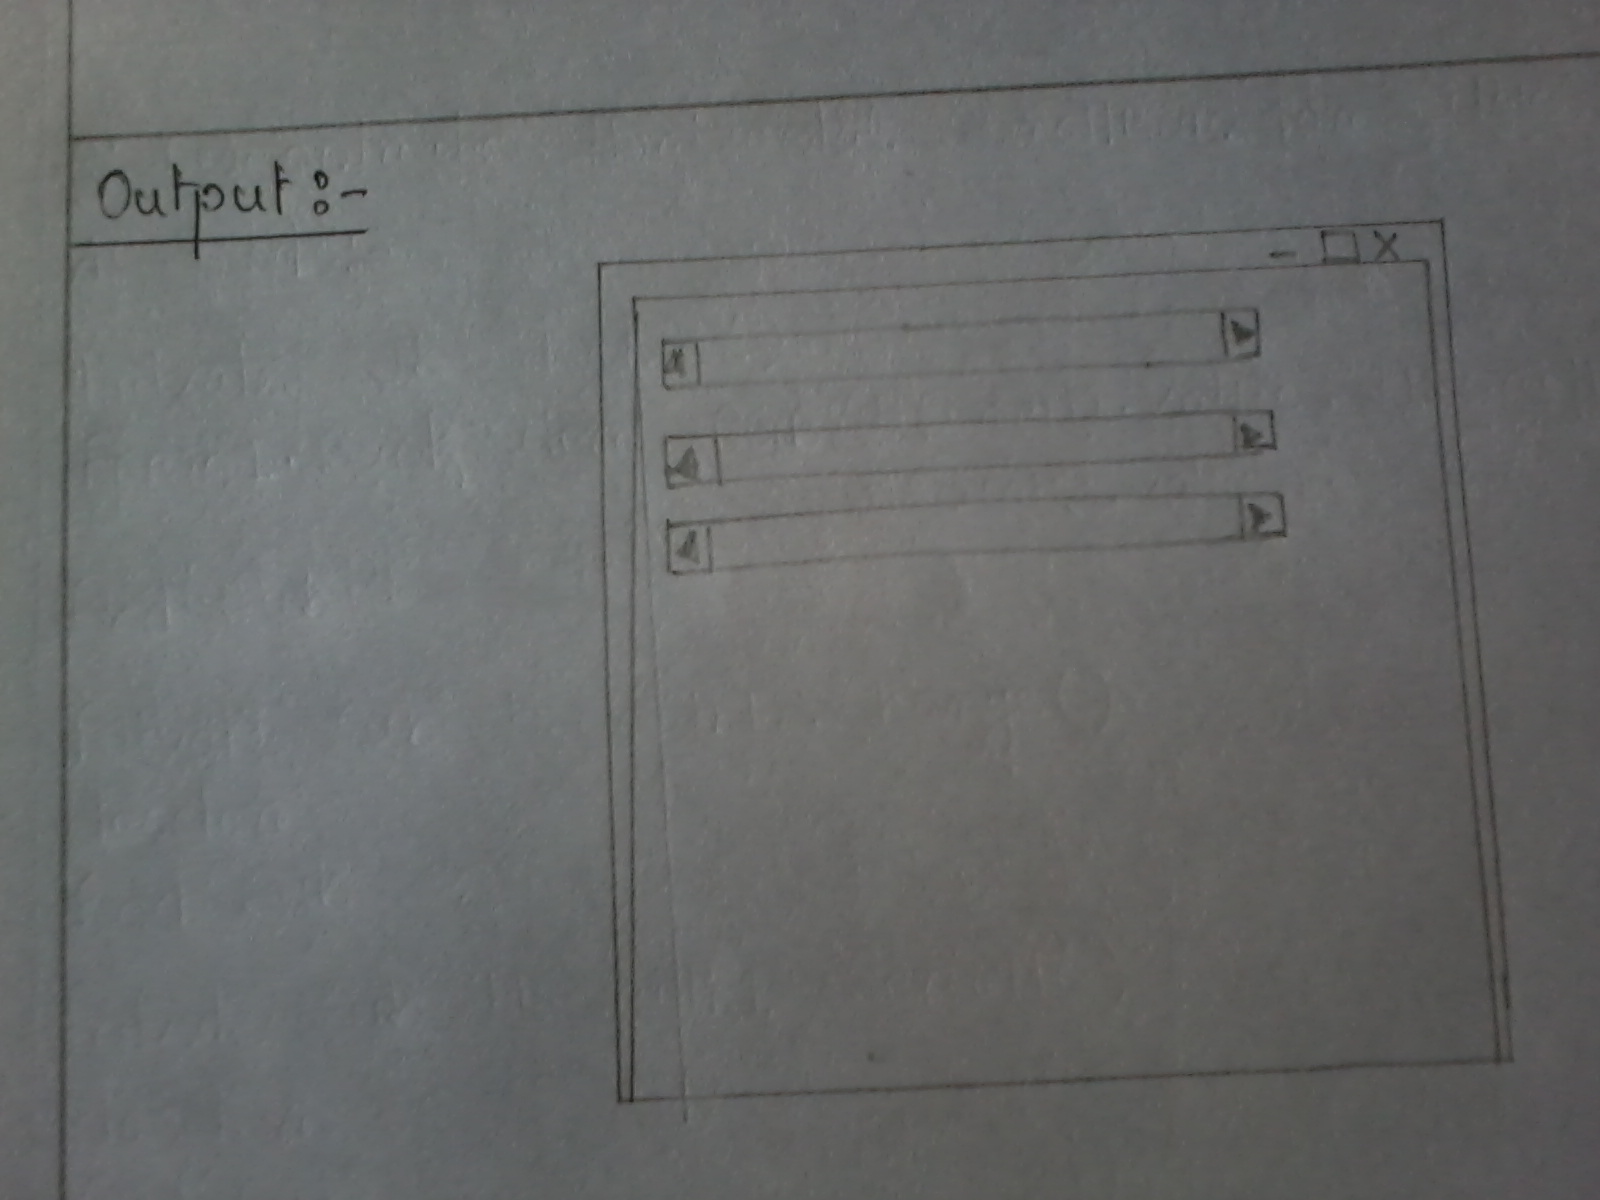 Output :-